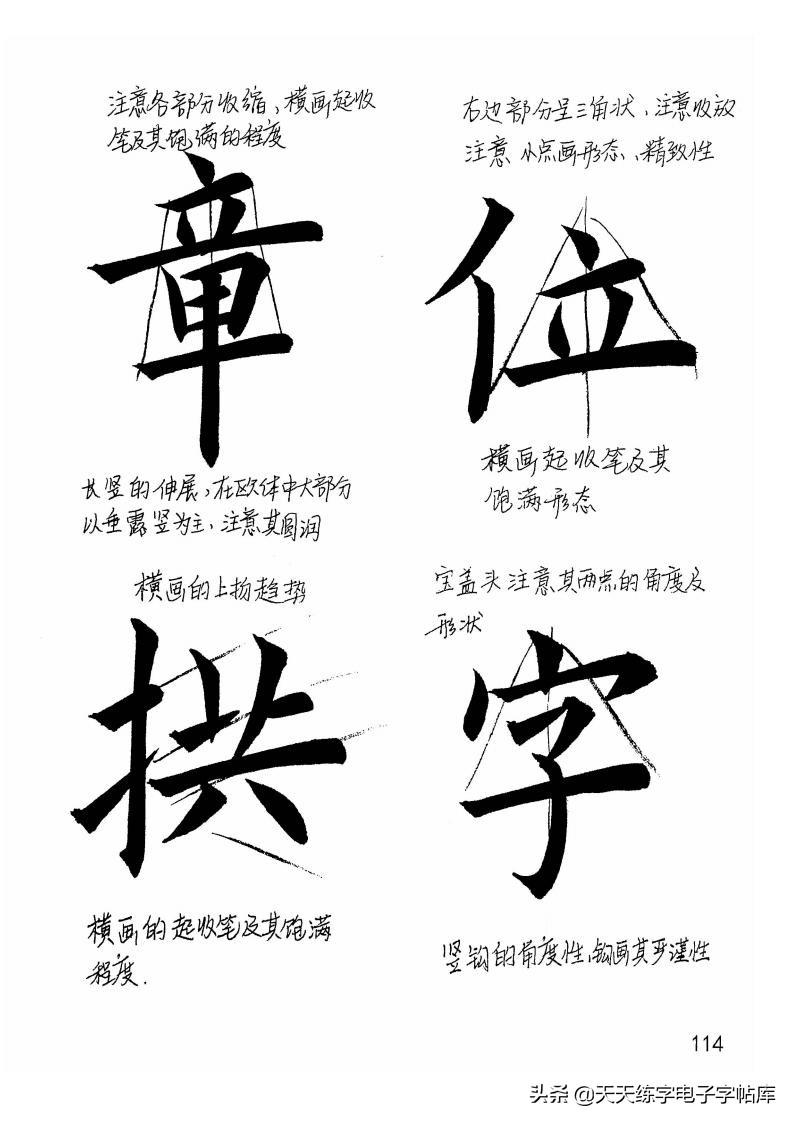 注意各部分收缩、横画起收
笔及其饱满的程度
章
长竖的伸展，在欧体中大部分
以垂露竖为主，注意其圆润
右边部分呈三角状，注意收放
注意 小点画形态、精致性
位
横画起收笔及其
饱满形态
横画的上扬趋势
拱
横画的起收笔及其饱满
程度.
宝盖头注意其两点的角度及
形状
字
竖钩的角度性，钩画其严谨性
114
头条 @天天练字电子字帖库